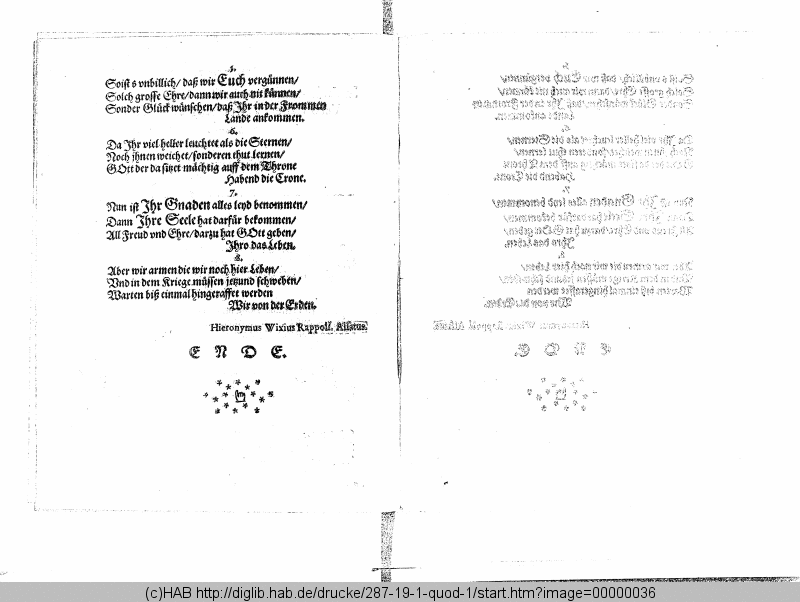 5.
Soist s vnbillich/ daß wir Euch vergünnen/
Solch grosse Ehre/dann wir auch nit können/
Sonder Glück wünschen/daß Ihr in der Frommen
Lande ankommen.
6.
Da Ihr viel heller leuchtet als die Sternen/
Noch ihnen weichet/sonderen thut lernen/
GOtt der da sitzet mächtig auff dem Throne
Habend die Crone.
7.
Nun ist Ihr Gnaden alles leyd benommen/
Dann Ihre Seele hat darfür bekommen/
All Freud vnd Ehre/darzu hat GOtt geben/
Ihro das Leben.
8.
Aber wir armen die wir noch hier Leben/
Vnd in dem Kriege müssen jetzund schweben/
Warten biß einmal hingeraffet werden
Wir von der Erden.
Hieronymus Wixius Rappolt. Alsatus.
E N D E.
(c)HAB http://diglib.hab.de/drucke/287-19-1-quod-1/start.htm?image=00000036